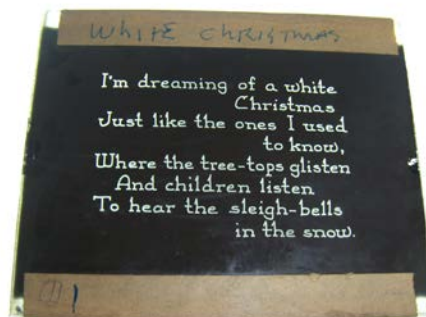 WHITE CHRISTMAS
I'm dreaming of a white
Christmas
Just like the ones I used
to know,
Where the tree-tops glisten
And children listen
To hear the sleigh-bells
in the snow.